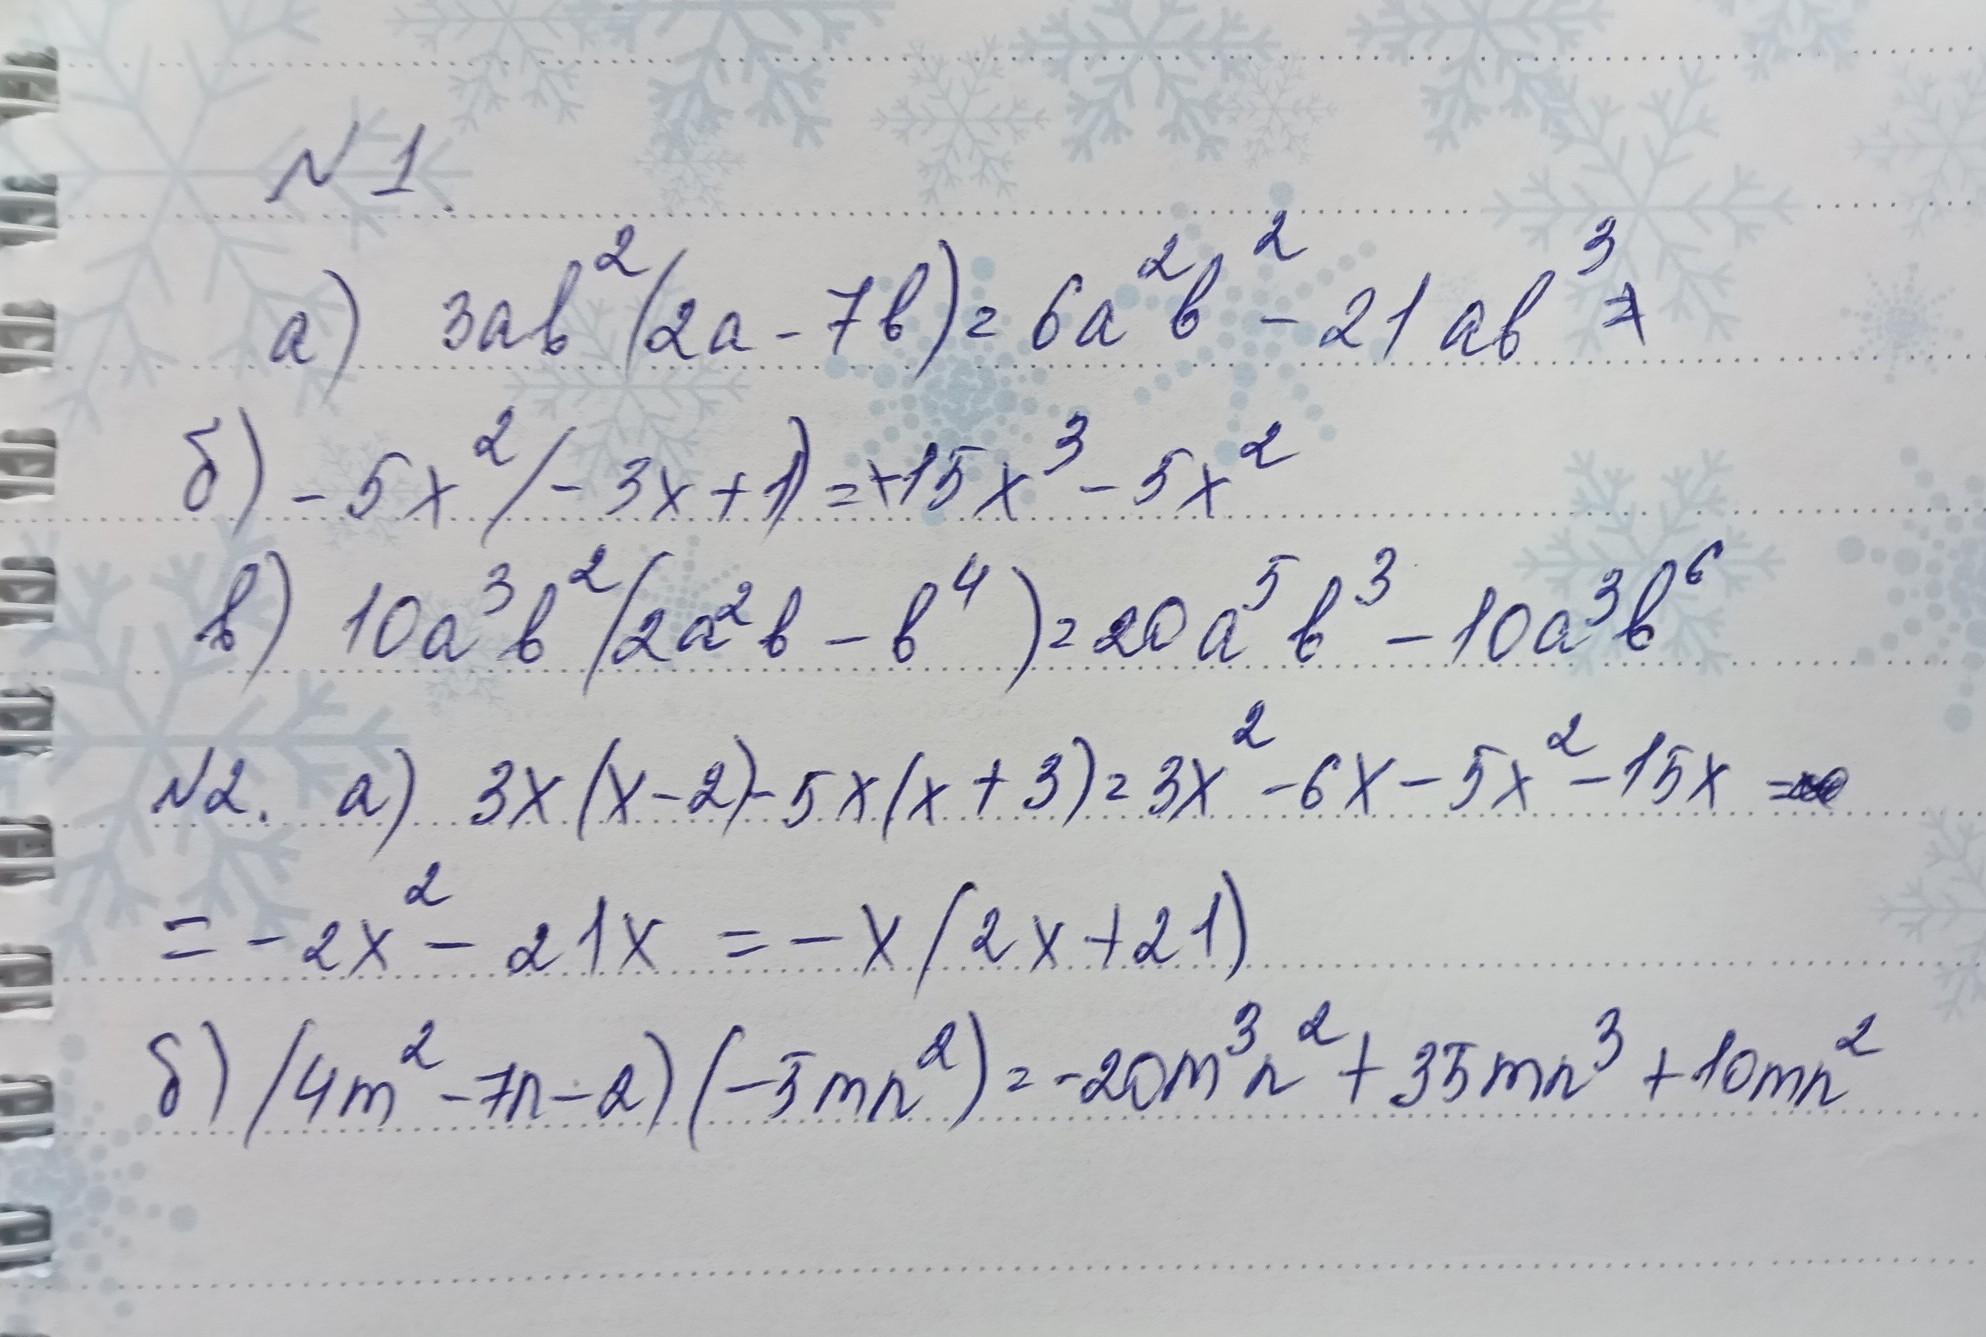 №1.
а) 3ab²(2a-7b)=6a²b²-21ab³
б) -5x²(-3x+1)=+15x³-5x²
в) 10a³b²(2a²b-b⁴)=20a⁵b³-10a³b⁶
№2. а) 3x(x-2)-5x(x+3)=3x²-6x-5x²-15x =
= -2x²-21x = -x(2x+21)
б) (4m²-7n-2)(-5mn²)=-20m³n²+35mn³+10mn²